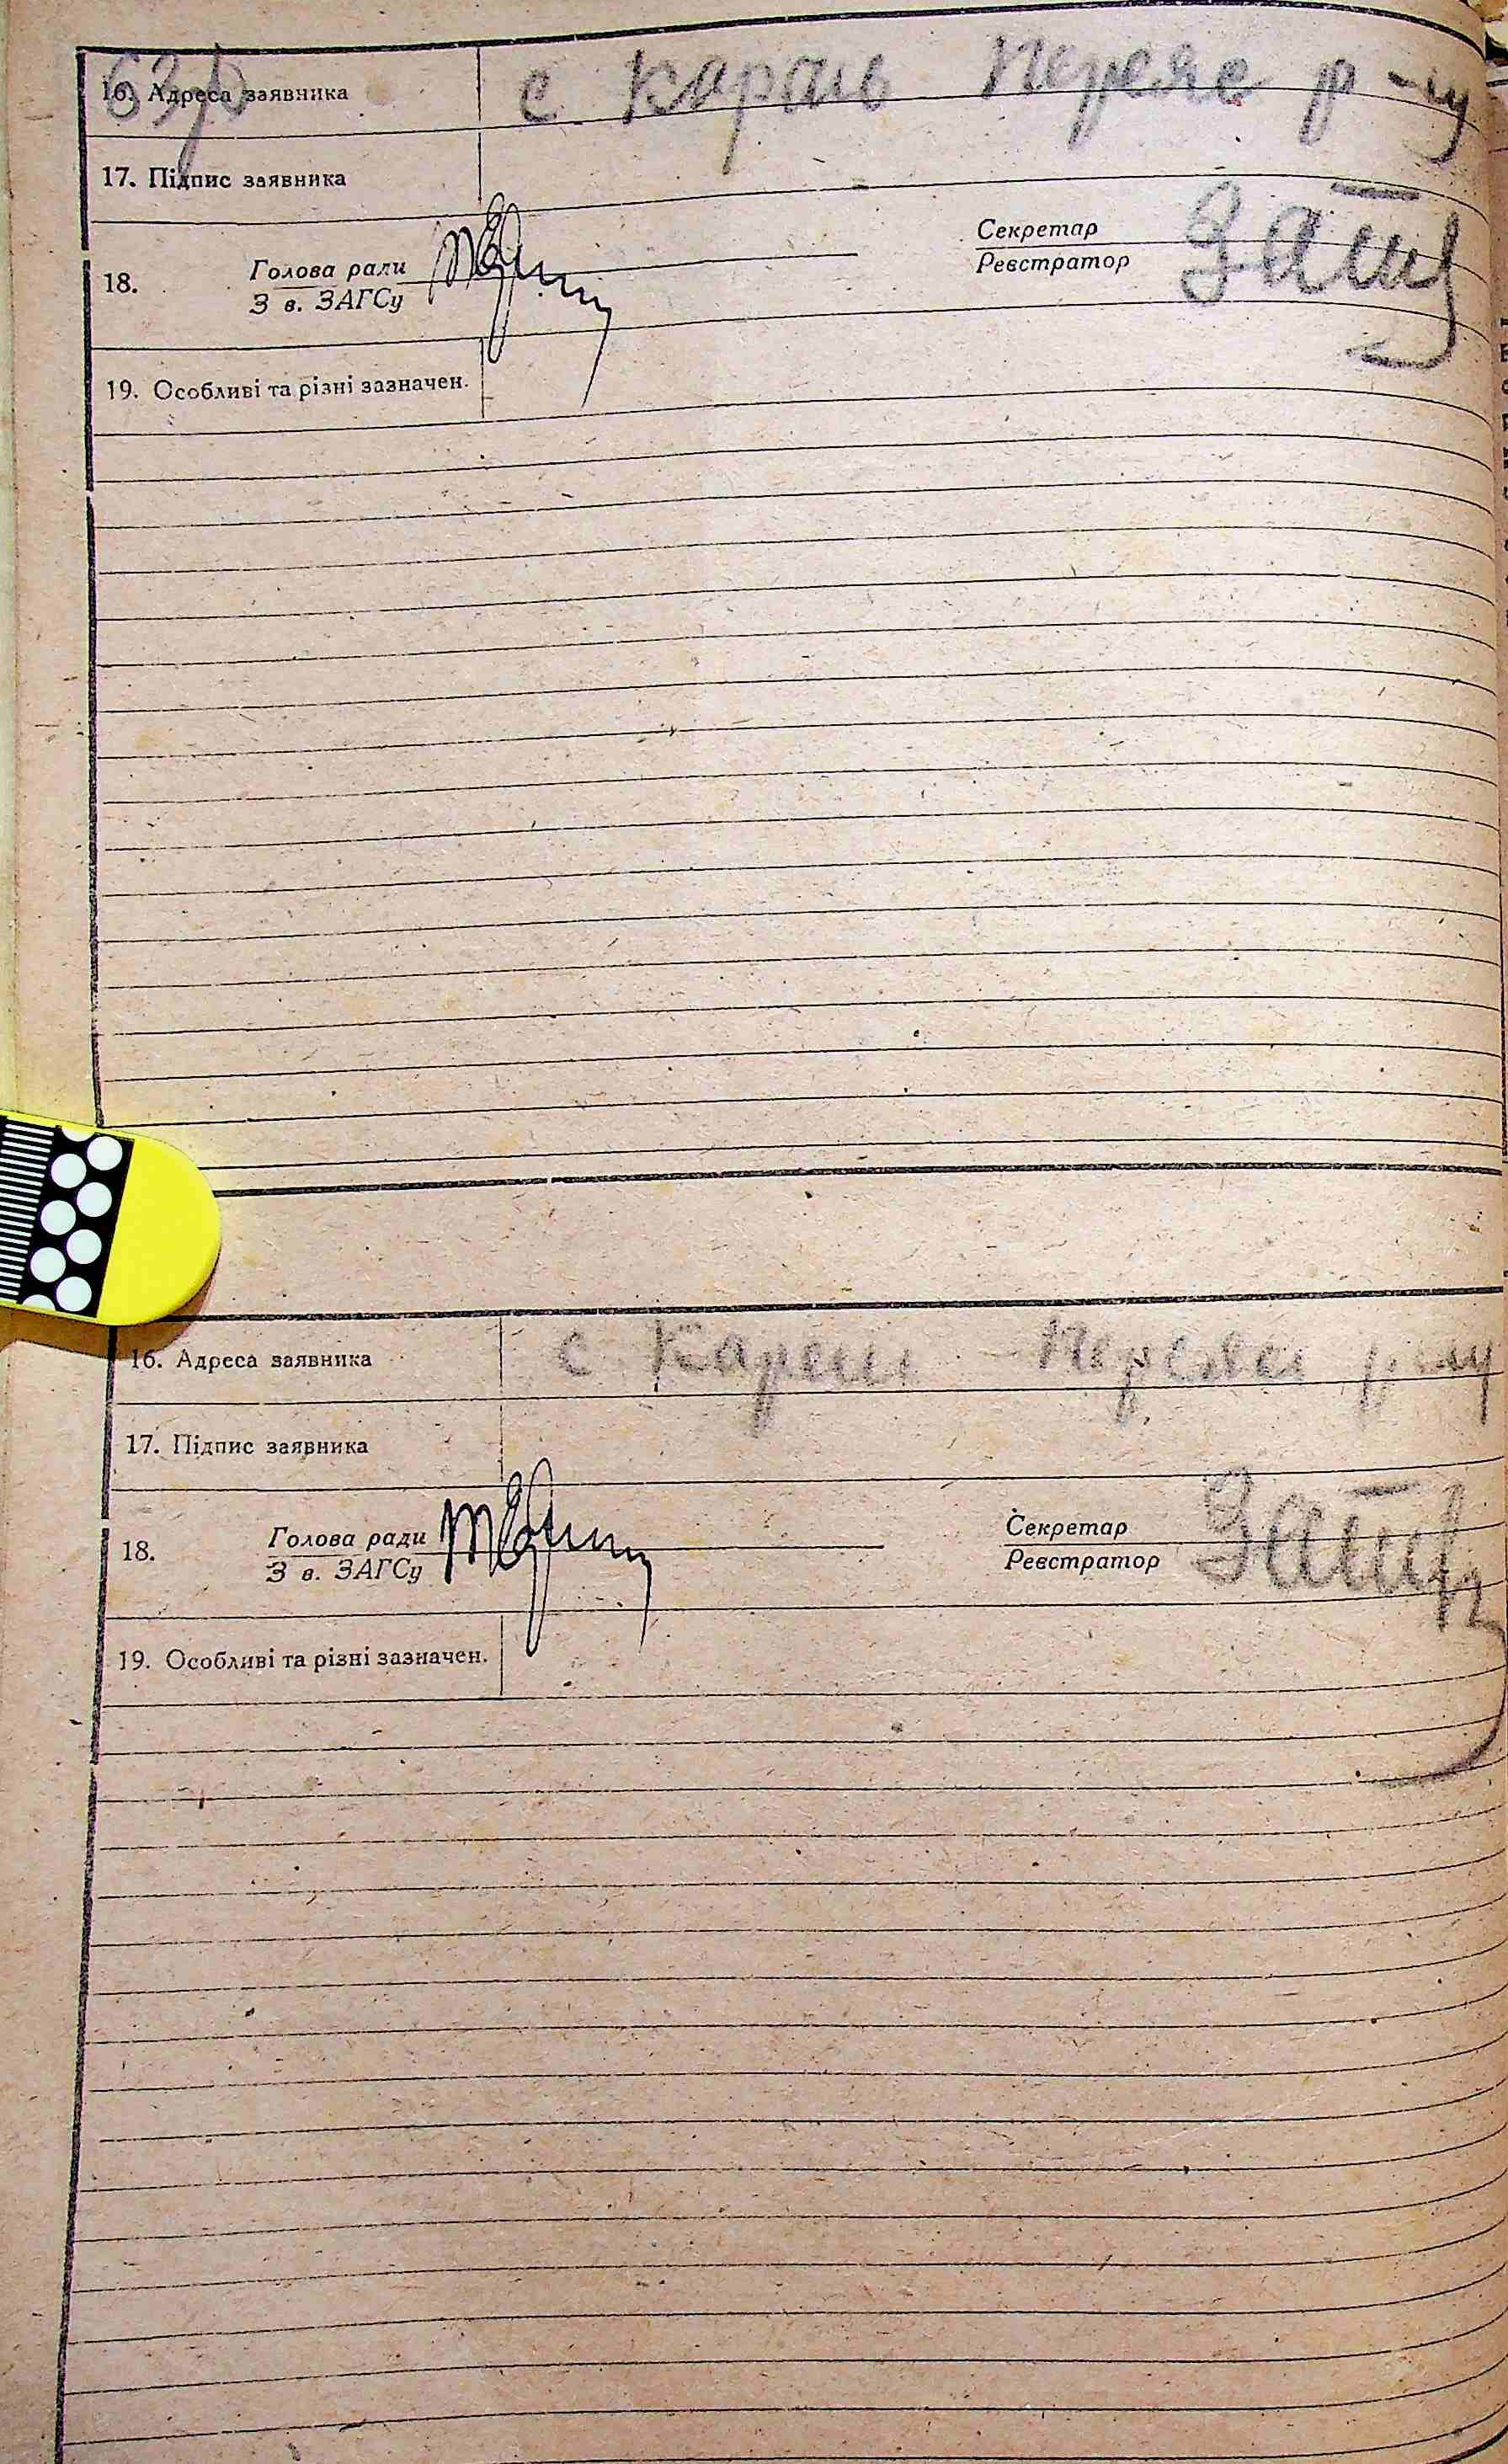 63р
16. Адреса заявника с. Караль Переяс р-ну
17. Підпис заявника
Секретар
Голова ради Реєстратор
18. З в. ЗАГСу
19. Особливі та різні зазначен.
16. Адреса заявника с р-ну
17. Підпис заявника
Секретар
Голова ради Реєстратор
18. З в. ЗАГСу
19. Особливі та різні зазначен.